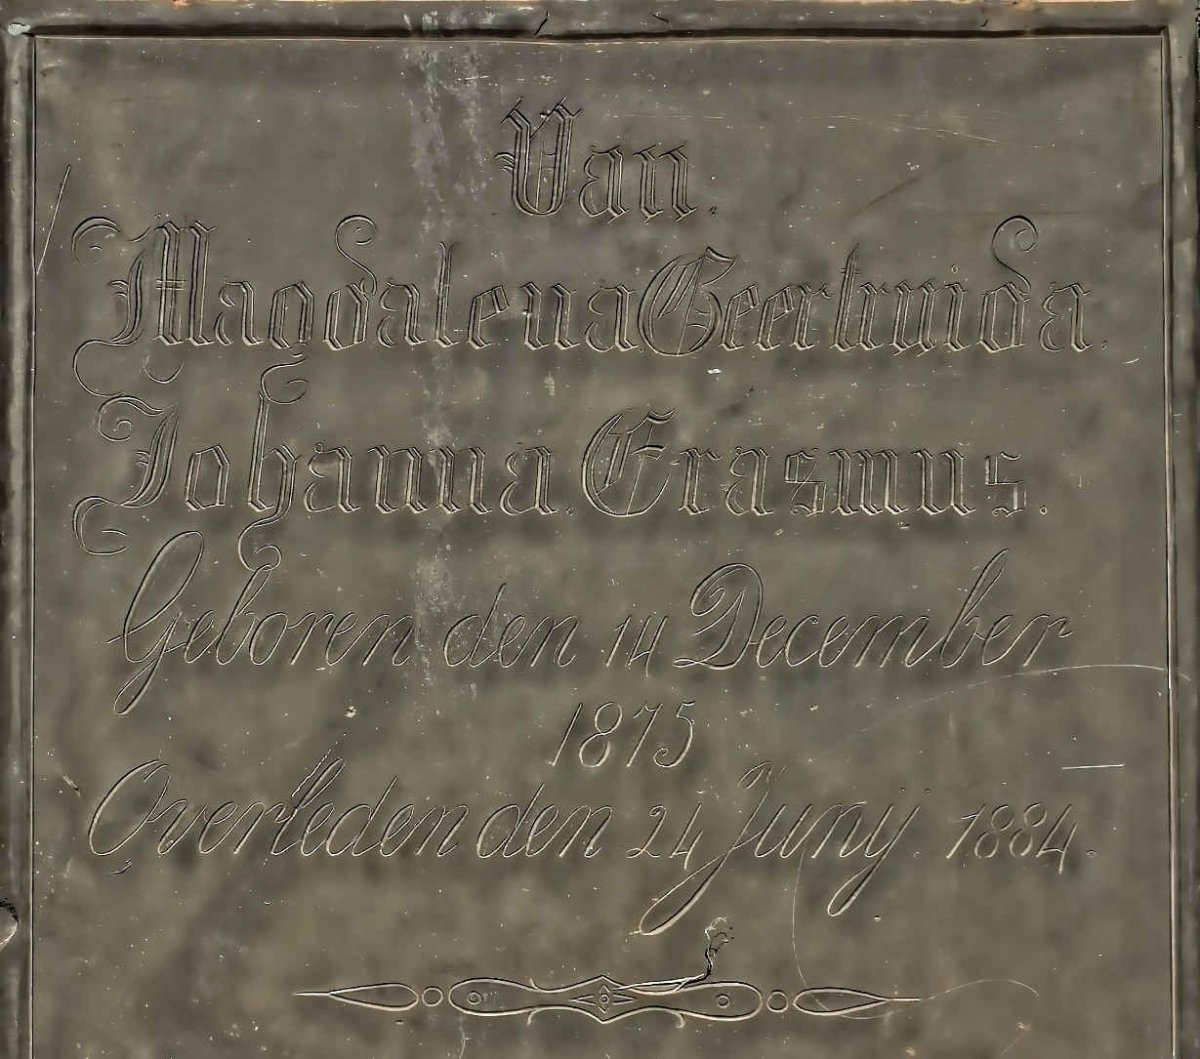 Van.
Magdalena Geertruida.
Johanna. Erasmus.
Geboren den 14 December
1875
Overleden den 24 Juny. 1884.